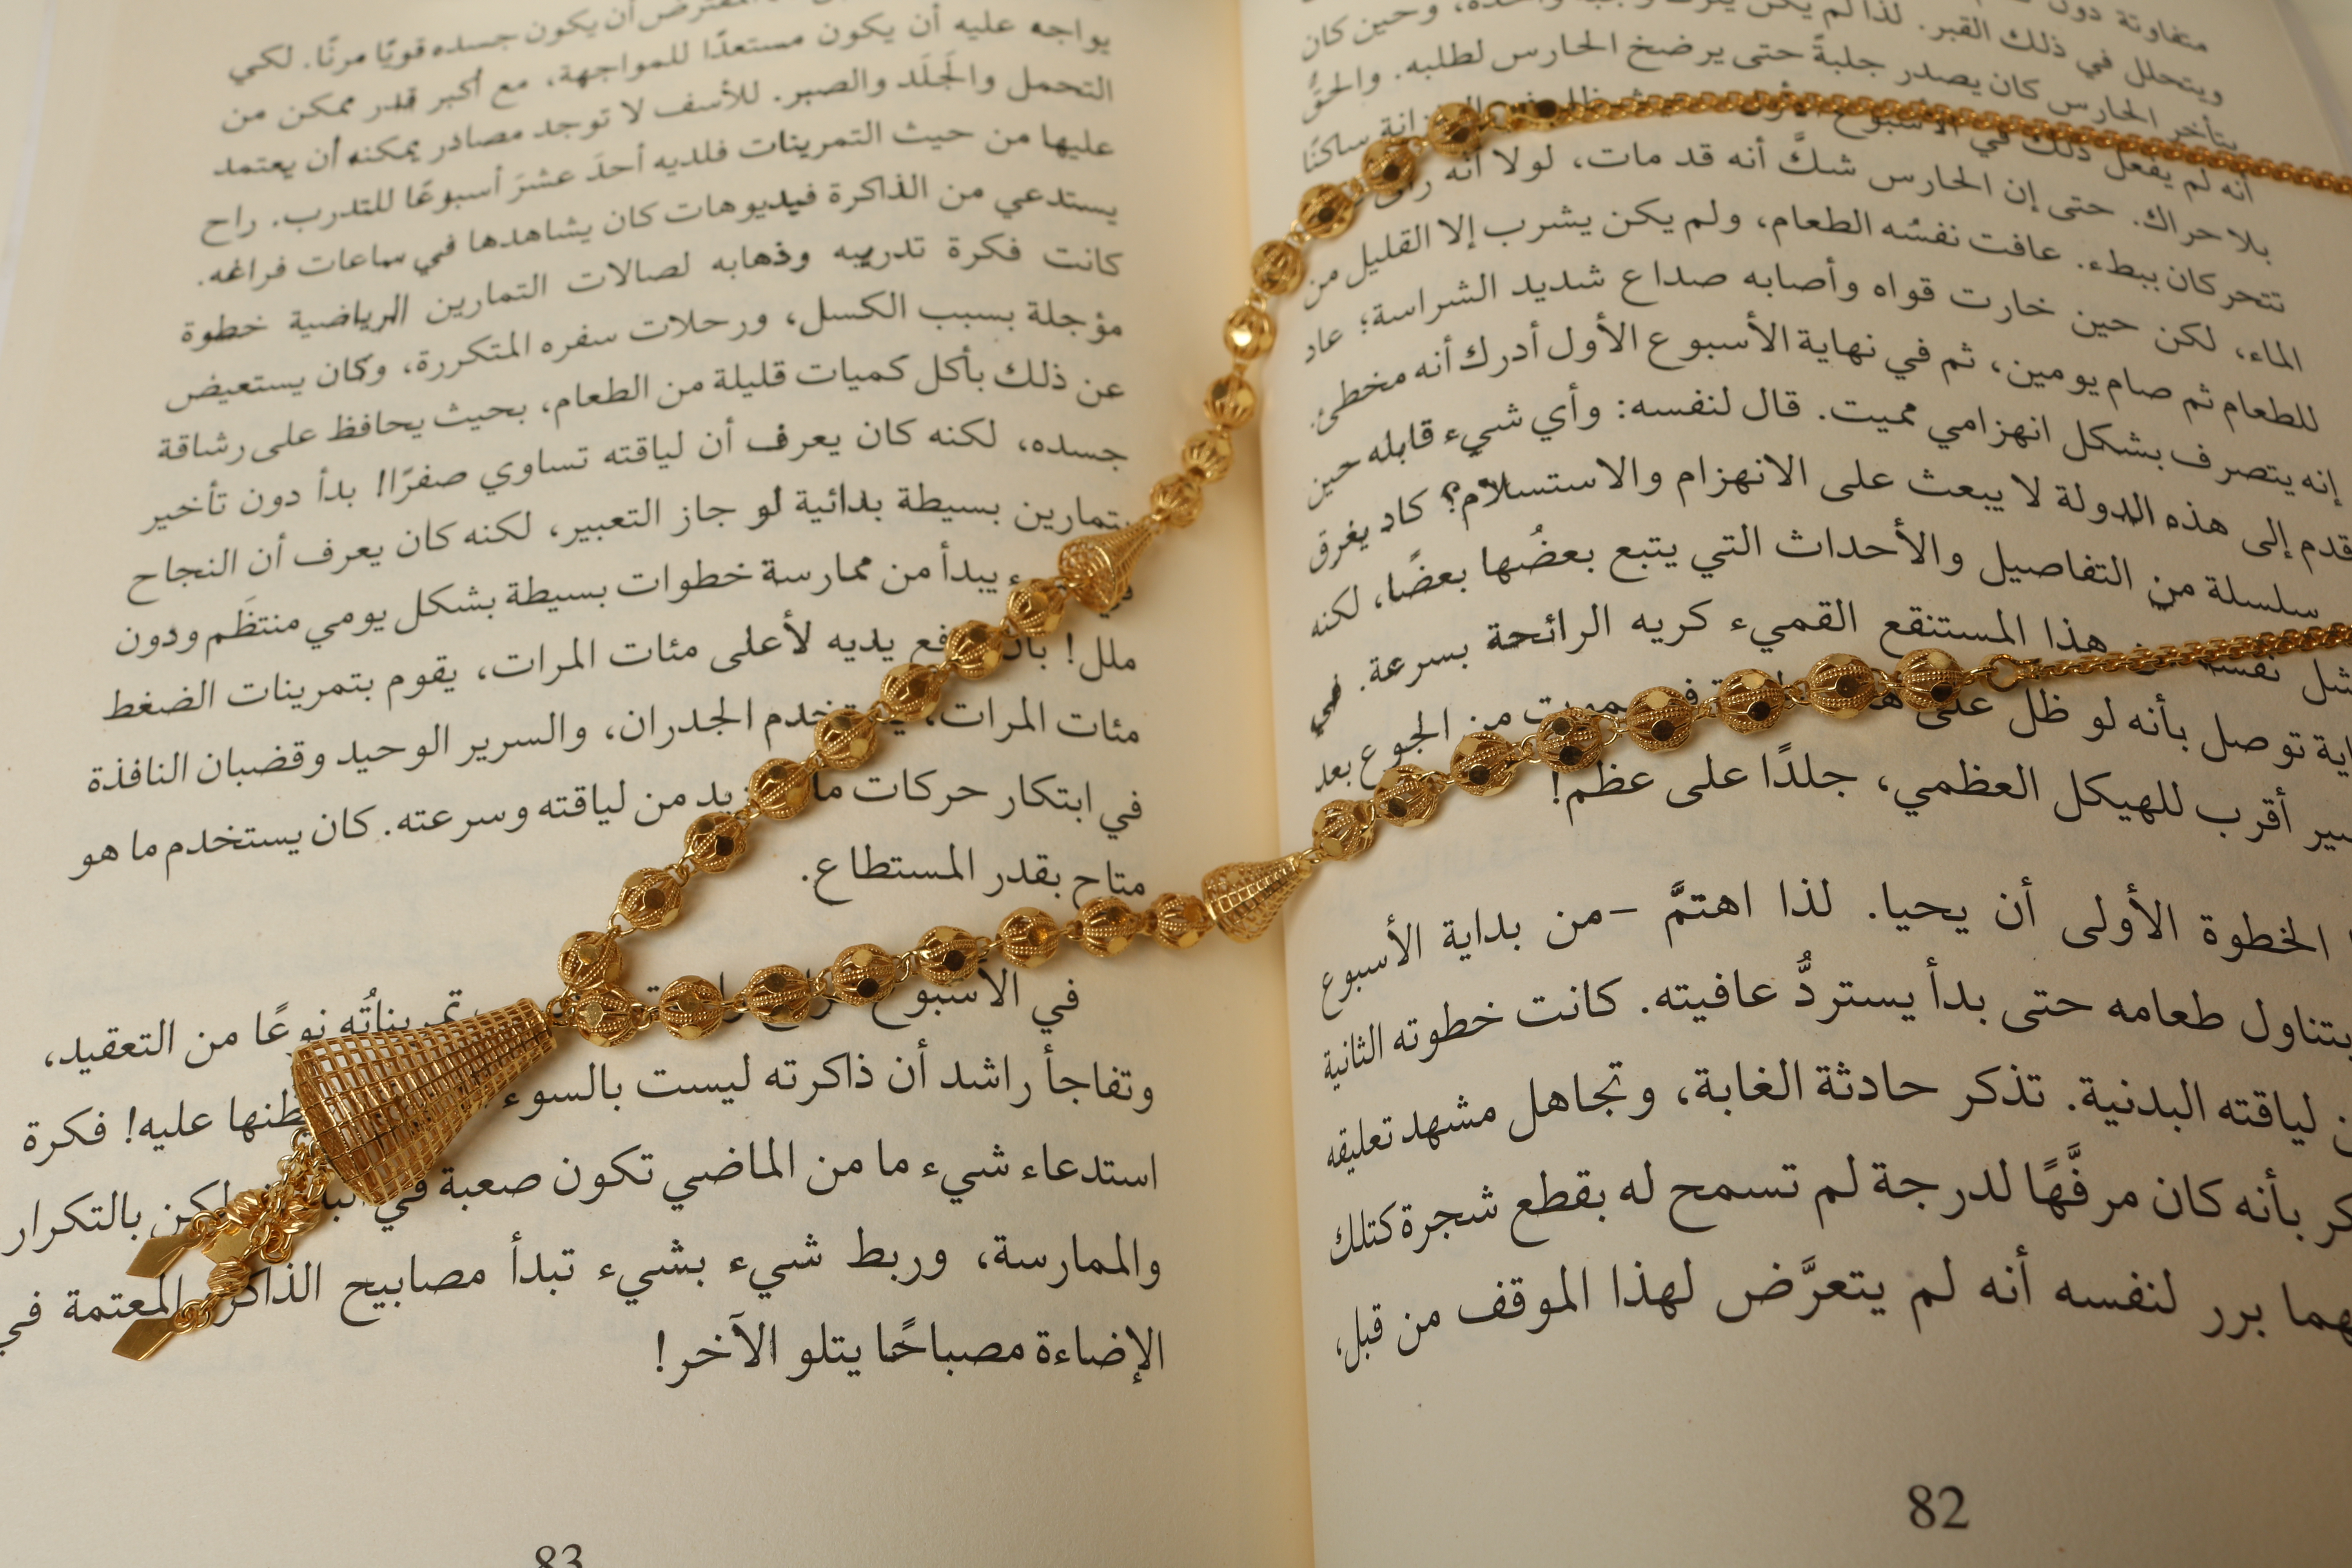 متفاوتة دون
ويتحلل في ذلك القبر. لذا لم يكن يترك وجبة واحدة، وحين كان
يتأخر الحارس كان يصدر جلبةً حتى يرضخ الحارس لطلبه. والحقُّ
أنه لم يفعل ذلك في الأسبوع الأول ساكنًا
بلا حراك. حتى إن الحارس شكَّ أنه قد مات، لولا أنه
تتحركان ببطء. عافت نفسُه الطعام، ولم يكن يشرب إلا القليل من
الماء، لكن حين خارت قواه وأصابه صداع شديد الشراسة؛ عاد
للطعام ثم صام يومين، ثم في نهاية الأسبوع الأول أدرك أنه مخطئ.
إنه يتصرف بشكل انهزامي مميت. قال لنفسه: وأي شيء قابله حين
قدم إلى هذه الدولة لا يبعث على الانهزام والاستسلام؟ كاد يغرق
سلسلة من التفاصيل والأحداث التي يتبع بعضُها بعضًا، لكنه
نفسه هذا المستنقع القميء كريه الرائحة بسرعة. في
توصل بأنه لو ظل على من الجوع بعد
أقرب للهيكل العظمي، جلدًا على عظم!
الخطوة الأولى أن يحيا. لذا اهتمَّ -من بداية الأسبوع
بتناول طعامه حتى بدأ يستردُّ عافيته. كانت خطوته الثانية
لياقته البدنية. تذكر حادثة الغابة، وتجاهل مشهد تعليقه
بأنه كان مرفَّهًا لدرجة لم تسمح له بقطع شجرة كتلك
برر لنفسه أنه لم يتعرَّض لهذا الموقف من قبل،
82
المفترض أن يكون جسده قويًا مرنًا. لكي
يواجه عليه أن يكون مستعدًا للمواجهة، مع أكبر قدر ممكن من
التحمل والجَلَد والصبر. للأسف لا توجد مصادر يمكنه أن يعتمد
عليها من حيث التمرينات فلديه أحدَ عشرَ أسبوعًا للتدرب. راح
يستدعي من الذاكرة فيديوهات كان يشاهدها في ساعات فراغه.
كانت فكرة تدريبه وذهابه لصالات التمارين الرياضية خطوة
مؤجلة بسبب الكسل، ورحلات سفره المتكررة، وكان يستعيض
عن ذلك بأكل كميات قليلة من الطعام، بحيث يحافظ على رشاقة
جسده، لكنه كان يعرف أن لياقته تساوي صفرًا! بدأ دون تأخير
بتمارين بسيطة بدائية لو جاز التعبير، لكنه كان يعرف أن النجاح
يبدأ من ممارسة خطوات بسيطة بشكل يومي منتظَم ودون
ملل! يديه لأعلى مئات المرات، يقوم بتمرينات الضغط
مئات المرات، الجدران، والسرير الوحيد وقضبان النافذة
في ابتكار حركات من لياقته وسرعته. كان يستخدم ما هو
متاح بقدر المستطاع.
في الأسبوع تمريناتُه نوعًا من التعقيد،
وتفاجأ راشد أن ذاكرته ليست بالسوء عليه! فكرة
استدعاء شيء ما من الماضي تكون صعبة في لكن بالتكرار
والممارسة، وربط شيء بشيء تبدأ مصابيح الذاكرة المعتمة في
الإضاءة مصباحًا يتلو الآخر!
83